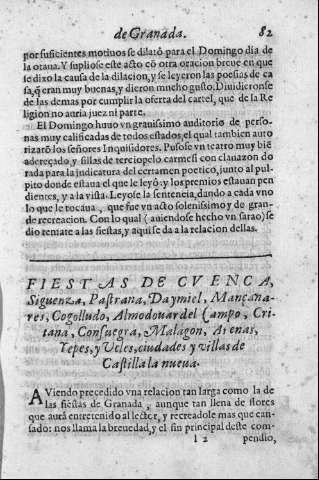 de Granada. 82
por suficientes motiuos se dilató para el Domingo dia de
la otaua. Y supliose este acto cō otra oracion breue en que
se dixo la causa de la dilacion, y se leyeron las poesias de ca
sa, q̃ eran muy buenas, y dieron mucho gusto. Diuidieronse
de las demas por cumplir la oferta del cartel, que de la Re
ligion no auria juez ni parte.
El Domingo huuo vn grauissimo auditorio de perso-
nas muy calificadas de todos estados, el qual tambien auto
rizarō los señores Inquisidores. Pusose vn teatro muy biē
adereçado, y sillas de terciopelo carmesi con clauazon do
rada para la judicatura del certamen poetico, junto al pul-
pito donde estaua el que le leyó: y los premios estauan pen
dientes, y a la vista. Leyose la sentencia, dando a cada vno
lo que le tocaua, que fue vn acto solenissimo y de gran-
de recreacion. Con lo qual (auiendose hecho vn sarao) se
dio remate a las fiestas, y aqui se da a la relacion dellas.
FIESTAS DE CVENCA,
Siguenza, Pastrana, Daymiel, Mançana-
res, Cogolludo, Almodouar del Campo, Cri-
tana, Consuegra, Malagon, Arenas,
Yepes, y Vcles, ciudades y villas de
Castilla la nueua.
AViendo precedido vna relacion tan larga como la de
las fiestas de Granada, aunque tan llena de flores
que aurá entretenido al lector, y recreadole mas que can-
sado: nos llama la breuedad, y el fin principal deste com-
l 2 pendio,